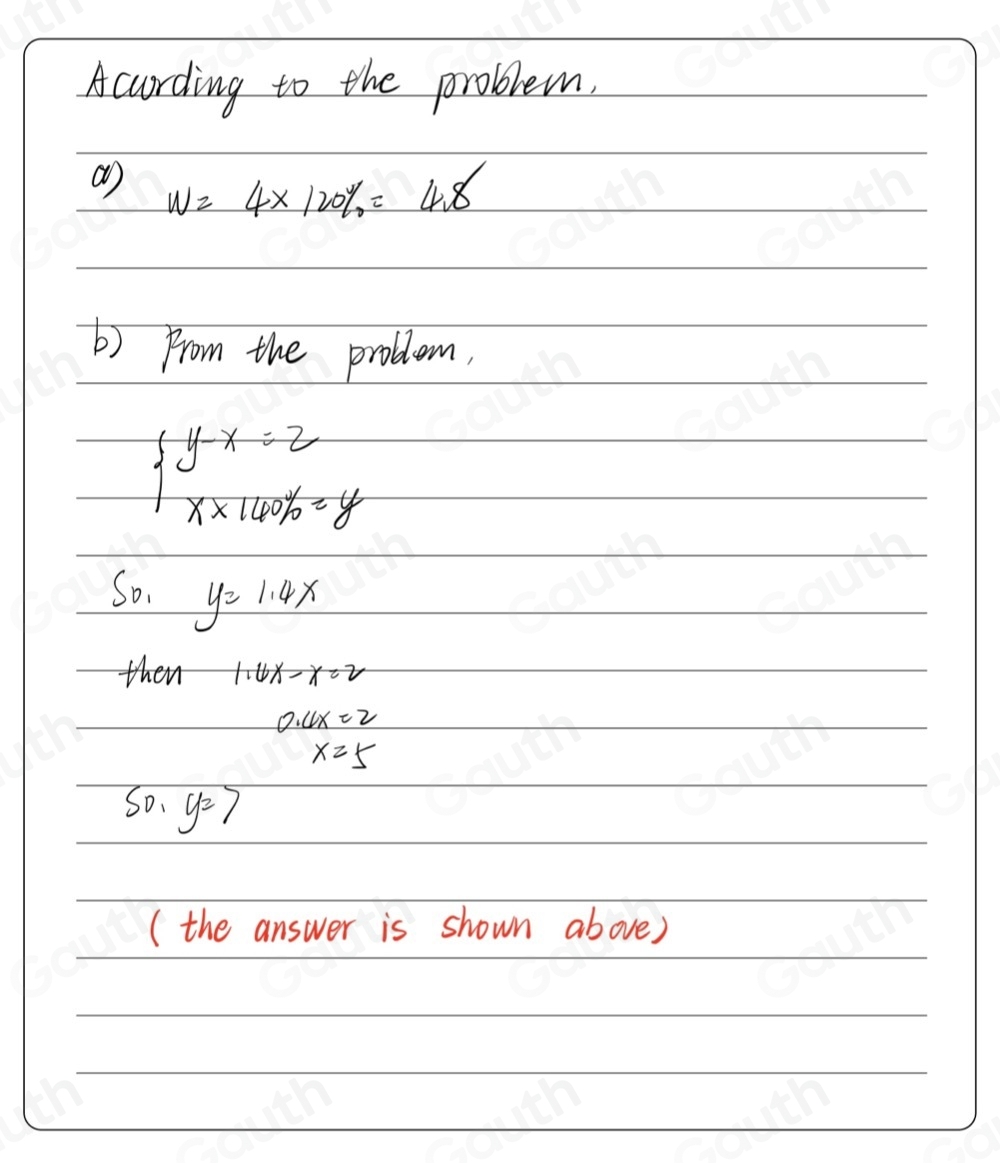 According to the problem,
a)
W = 4 × 120% = 4.8
b) From the problem,
{ y - x = 2
x × 140% = y
So, y = 1.4x
then 1.4x - x = 2
0.4x = 2
x = 5
So, y = 7
( the answer is shown above)